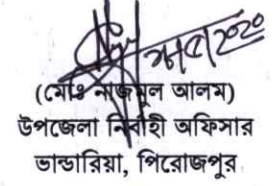 (মোঃ নাজমুল আলম)
উপজেলা নির্বাহী অফিসার
ভান্ডারিয়া, পিরোজপুর